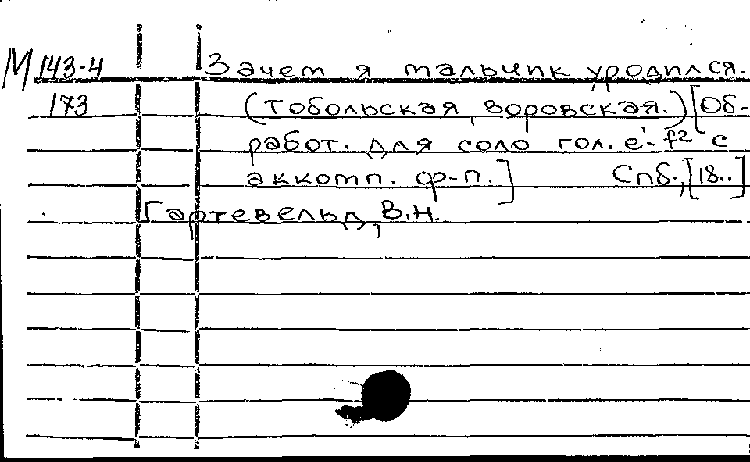 М 143-4 Зачем я мальчик уродился.
173 (тобольская, воровская.) [Об-
работ. для соло гол. e'-f² с
аккомп. ф-п.] Спб., [18..]
Гартевельд, В.Н.